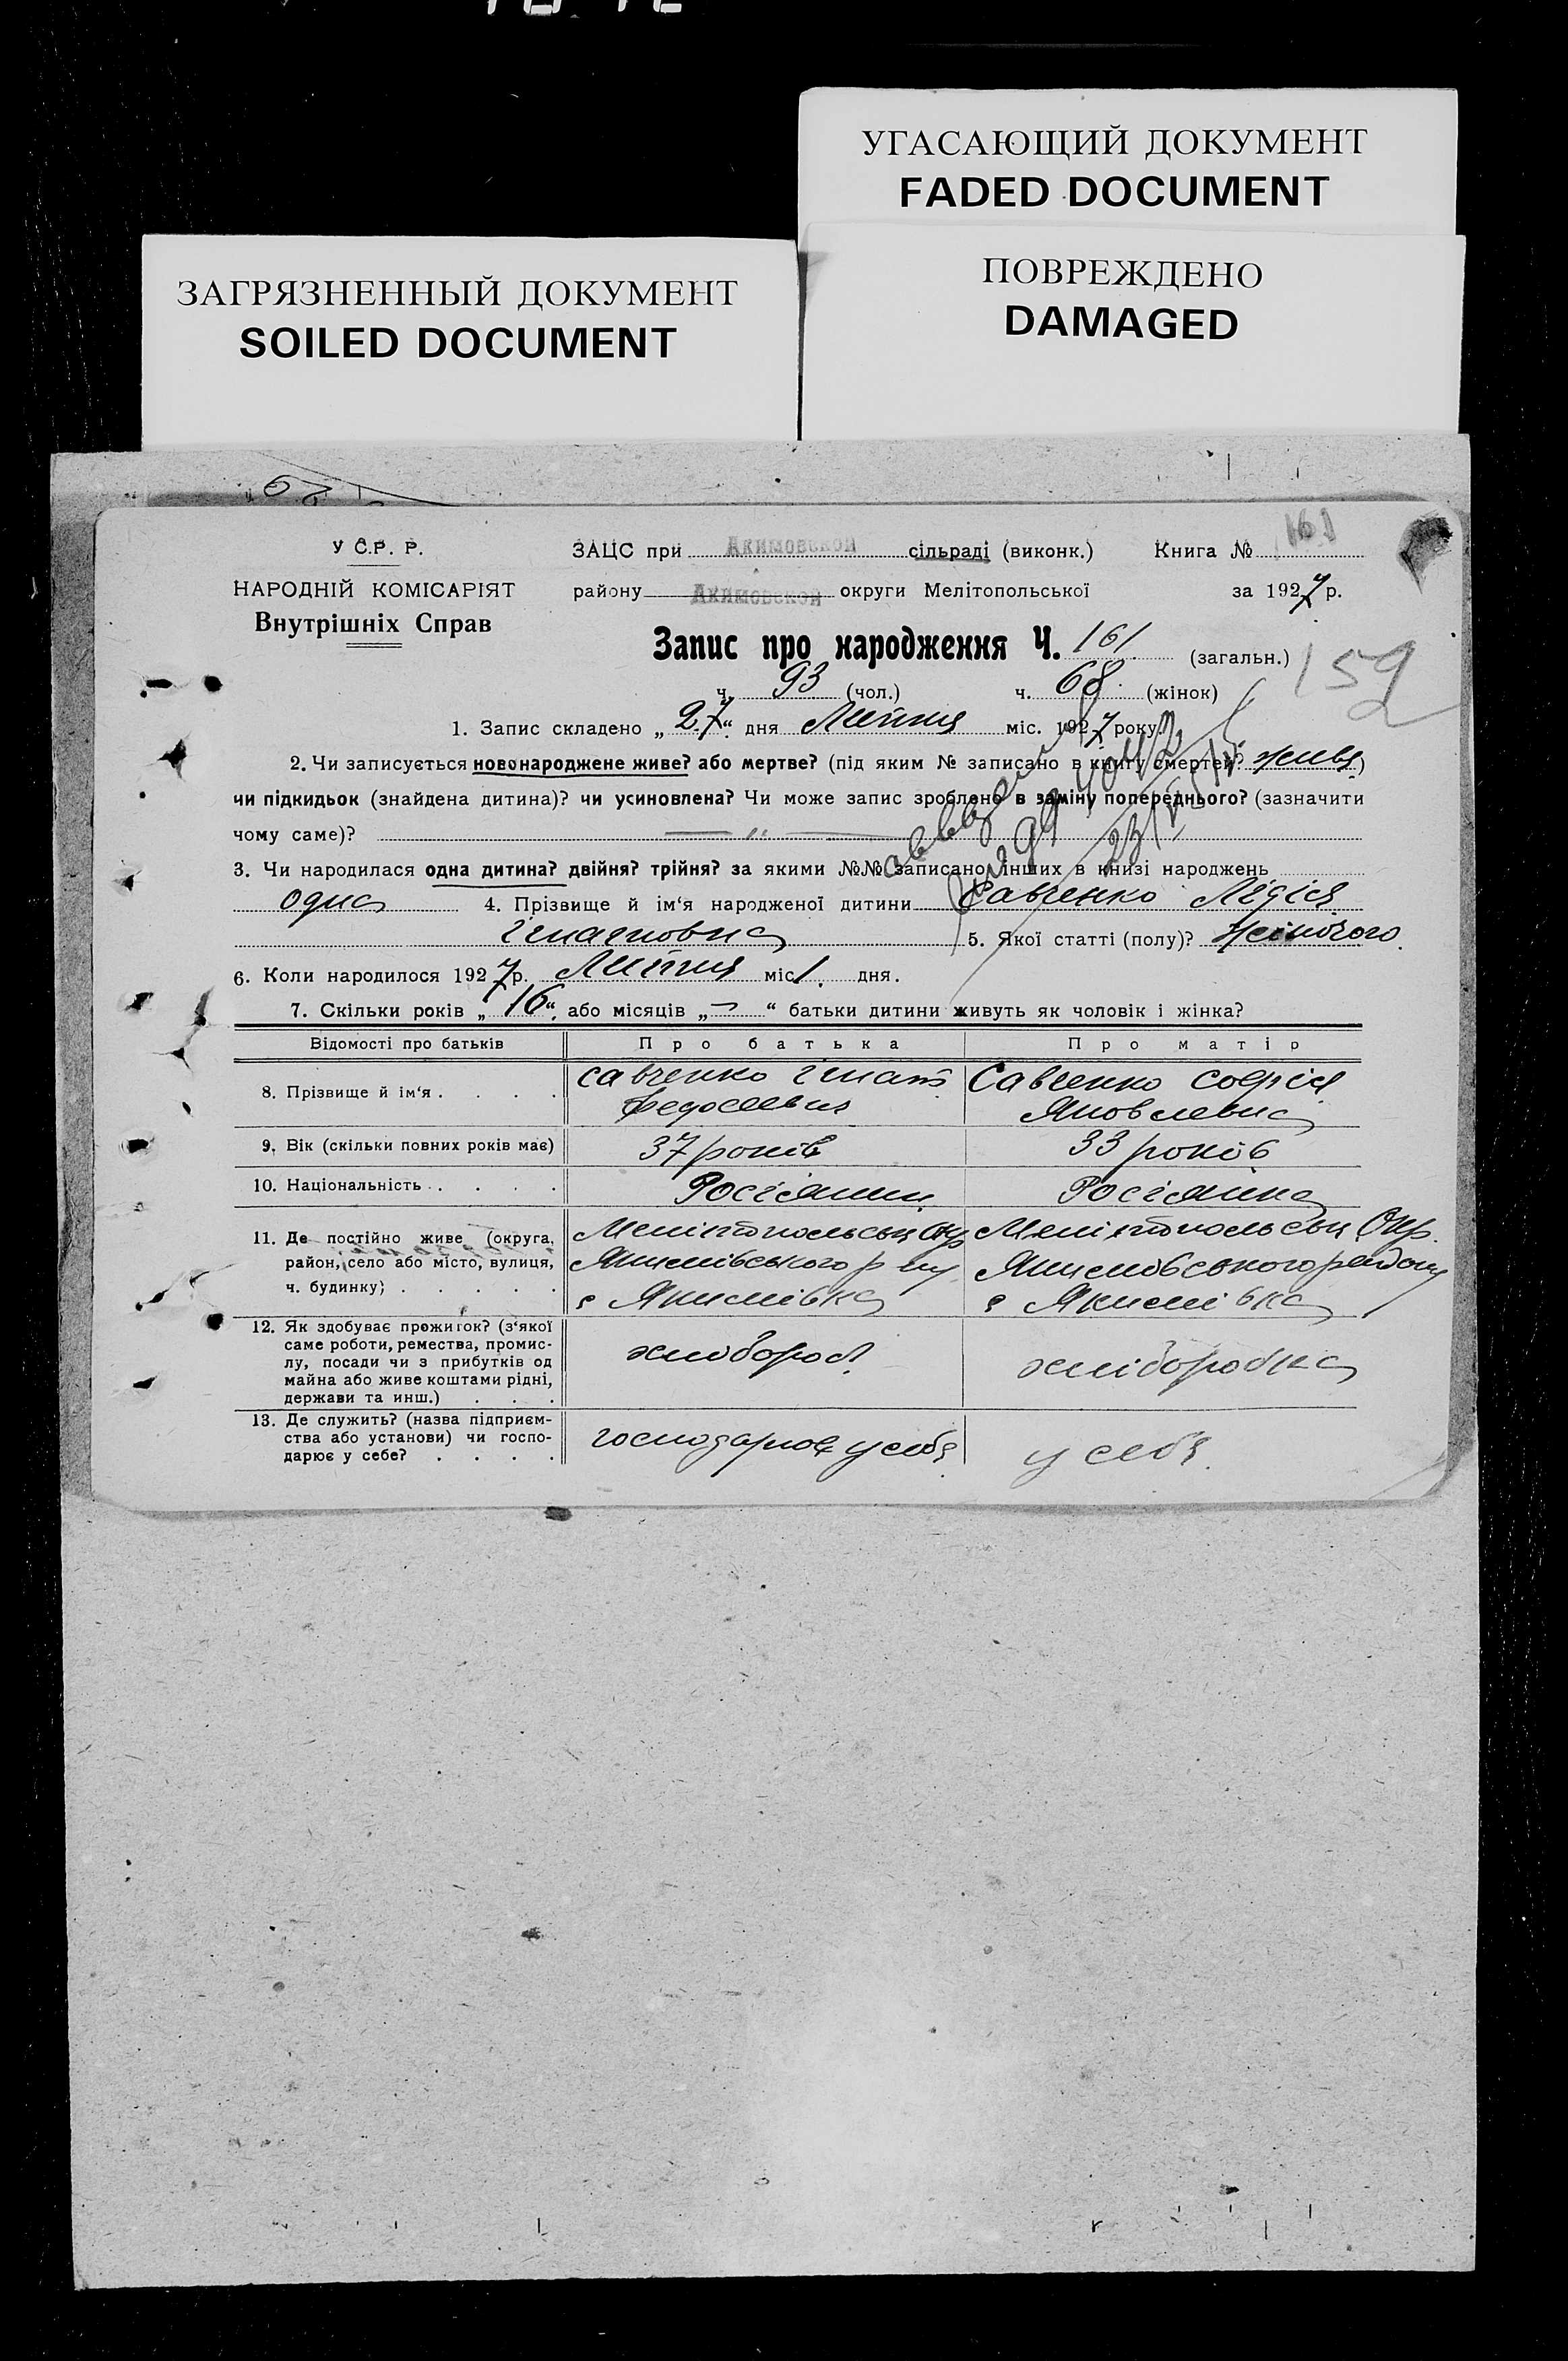 УГАСАЮЩИЙ ДОКУМЕНТ
FADED DOCUMENT
ЗАГРЯЗНЕННЫЙ ДОКУМЕНТ
SOILED DOCUMENT
ПОВРЕЖДЕНО
DAMAGED
У С.Р. Р.
НАРОДНІЙ КОМІСАРІЯТ
Внутрішніх Справ
ЗАЦС при Акимовской сільраді (виконк.) Книга № 161
району Акимовской округи Мелітопольської за 1927 р.
Запис про народження Ч. 161 (загальн.)
159
ч. 93 (чол.) ч. 68 (жінок)
1. Запис складено „27“ дня Липня міс. 1927 року.
2. Чи записується новонароджене живе? або мертве? (під яким № записано в книгу смертей? живе)
чи підкидьок (знайдена дитина)? чи усиновлена? Чи може запис зроблено в заміну попереднього? (зазначити
чому саме)? — „ —
3. Чи народилася одна дитина? двійня? трійня? за якими №№ записано інших в книзі народжень
одна 4. Прізвище й ім‘я народженої дитини Савченко Лідія
Ігнатовна 5. Якої статті (полу)? Жіночого
6. Коли народилося 1927 р. Липня міс 1 дня.
7. Скільки років „16“, або місяців „—“ батьки дитини живуть як чоловік і жінка?
Відомості про батьків Про батька Про матір
8. Прізвище й ім‘я . . . . Савченко Ігнат Федосеевич Савченко Софія Яковлевна
9. Вік (скільки повних років має) 37 років 33 років
10. Національність . . . . Росіянин Росіянка
11. Де постійно живе (округа, район, село або місто, вулиця, ч. будинку) . . . . . Мелітопольськ Окр Якимівського р ну с Якимівка Мелітопольськ Окр. Якимовського району с Якимівка
12. Як здобуває прожиток? (з‘якої саме роботи, ремества, промислу, посади чи з прибутків од майна або живе коштами рідні, держави та инш.) . . . хлібороб хліборобка
13. Де служить? (назва підприємства або установи) чи господарює у себе? . . . . господарює у себе у себе